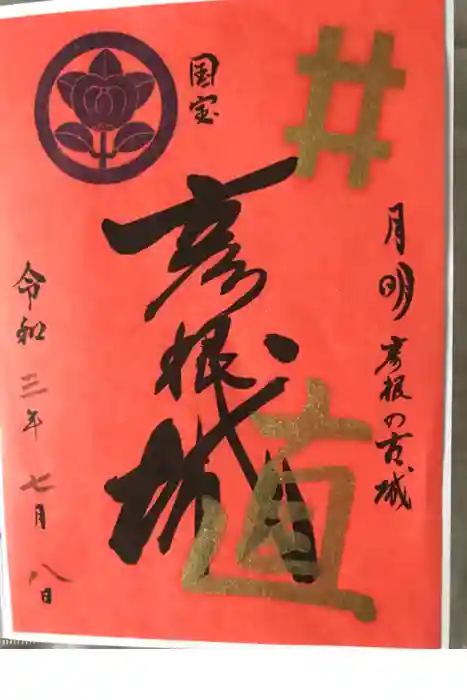 井
直
月明 彦根の古城
国宝
彦根城
令和三年七月八日